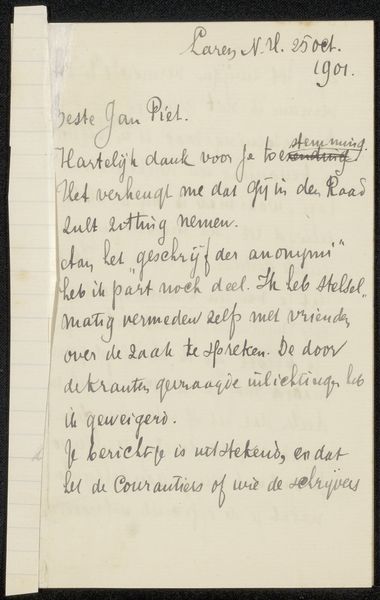 Laren N.H. 25 oct.
1901.
beste Jan Piet.
stemming.
Hartelijk dank voor je toezending
Het verheugt me dat gij in den Raad
zult zitting nemen.
Aan het "geschrijf der anonymi"
heb ik part noch deel. Ik heb stelsel-
matig vermeden zelf met vrienden
over de zaak te spreken. De door
de kranten gevraagde inlichtingen heb
ik geweigerd.
Je berichtje is uitstekend, en dat
het de Courantiers of wie de schrijvers